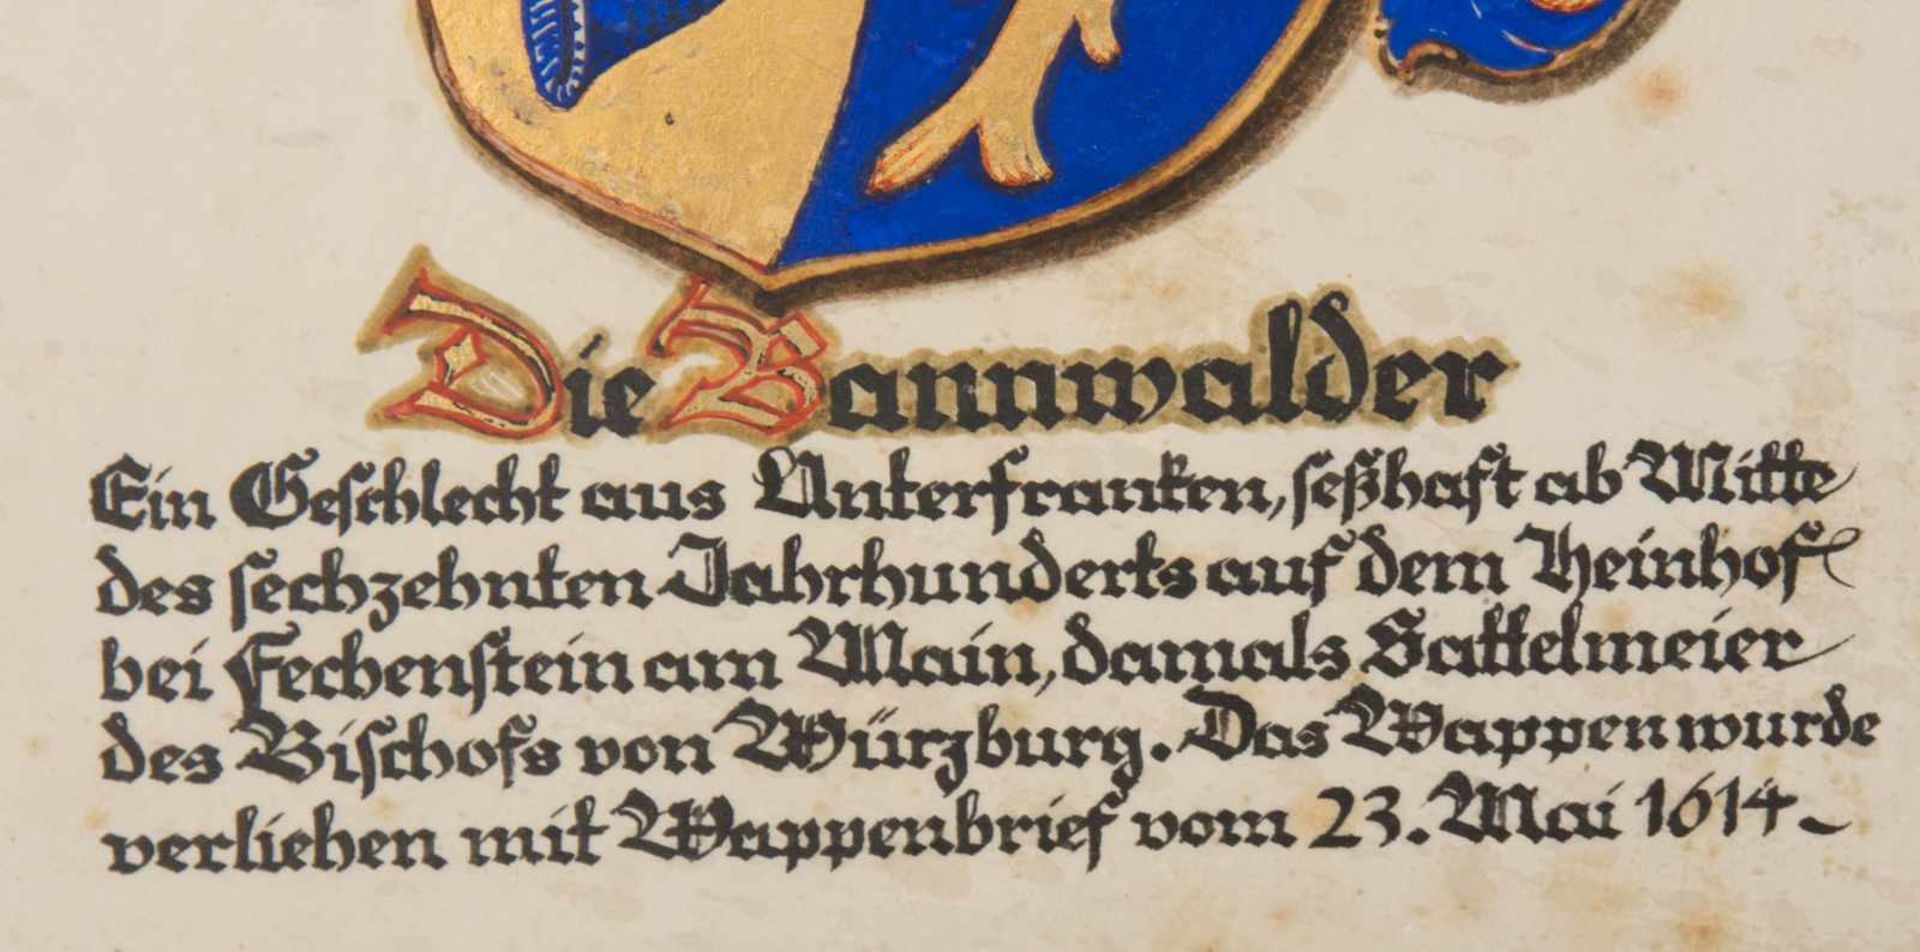 Die Bannwalder
Ein Geschlecht aus Unterfranken, seßhaft ab Mitte
des sechzehnten Jahrhunderts auf dem Heinhof
bei Fechenstein am Main, damals Sattelmeier
des Bischofs von Würzburg. Das Wappen wurde
verliehen mit Wappenbrief vom 23. Mai 1614 -